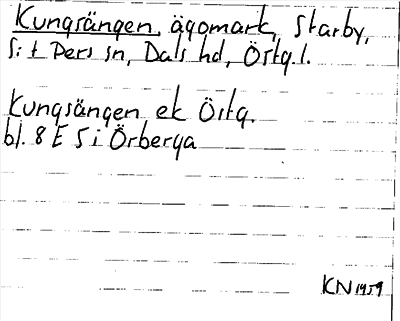 Kungsängen, ägomark, Starby,
S:t Pers sn, Dals hd, Östg.l.
Kungsängen ek Östg.
bl. 8 E 5 i Örberga
KN 1959